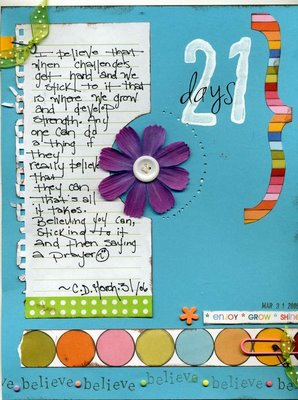 I believe that
when challenges
get hard and we
stick to it that
is where we grow
and develop
strength. Any
one can do
a thing if
they
really believe
that
they can
that's all
it takes.
Believing you can,
sticking to it
and then saying
a prayer
~C.D. March/31/06
21
days
MAR 31 2006
* ENJOY * GROW * SHINE
believe believe believe believe believe